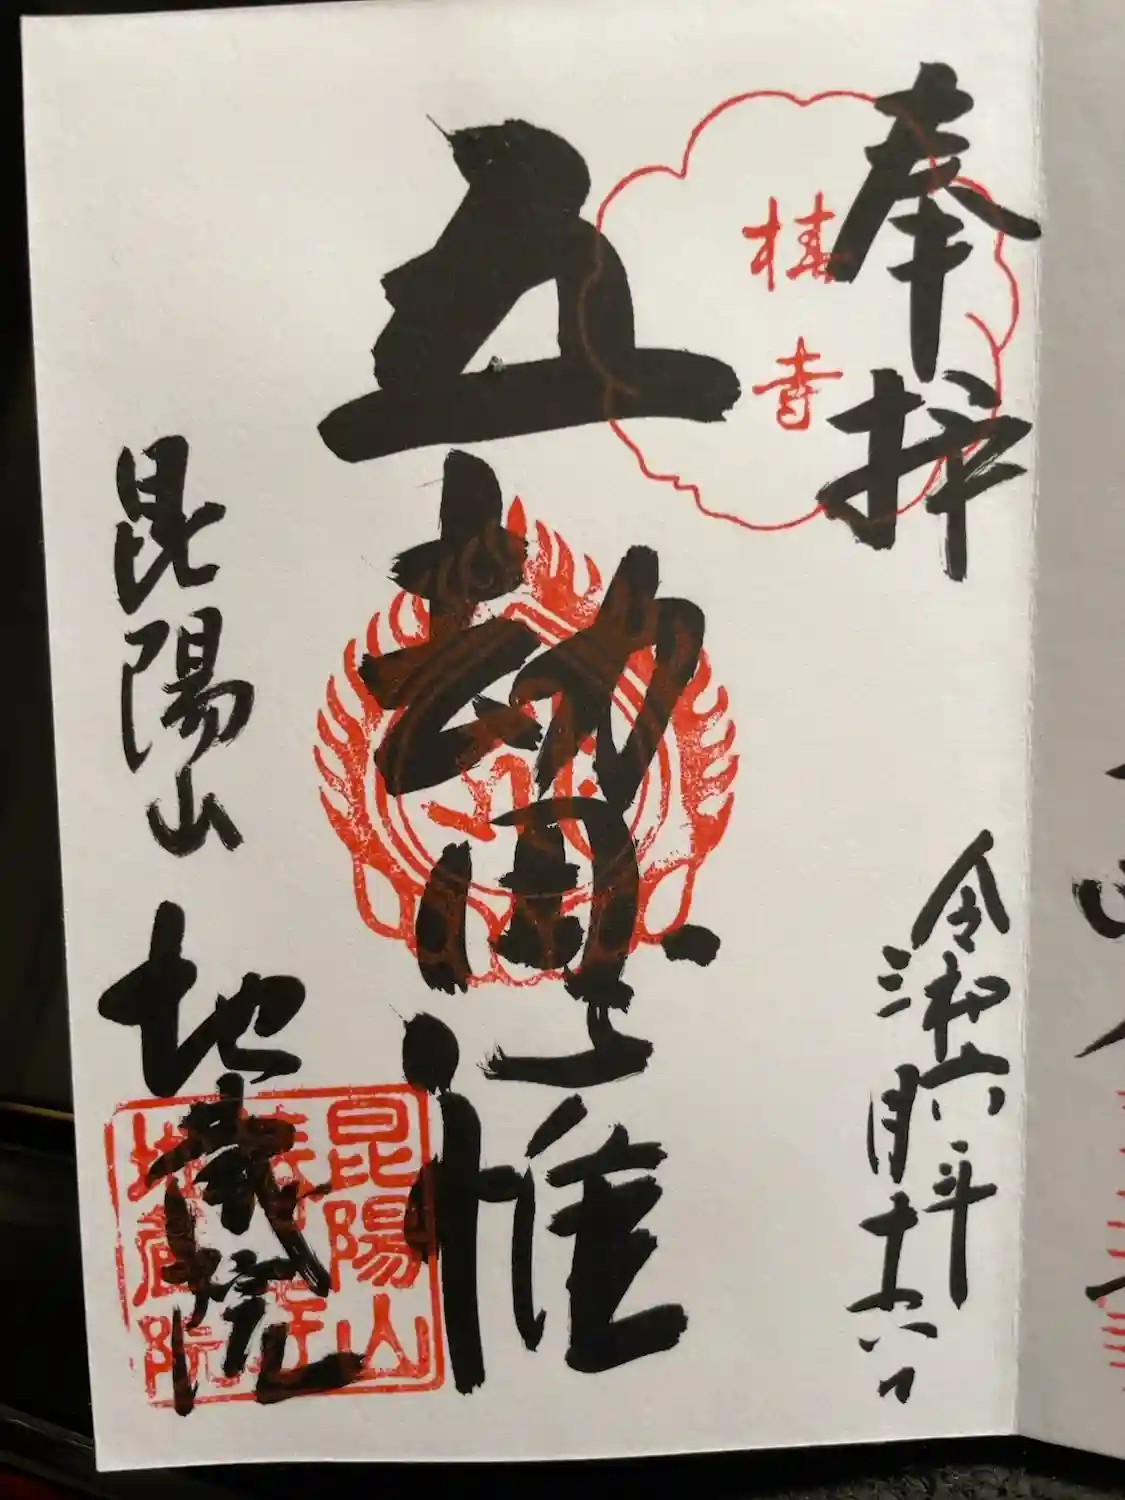 奉拝
椿寺
令和六年
三月十六日
五劫思惟
昆陽山 地蔵院
昆陽山
椿寺
地蔵院